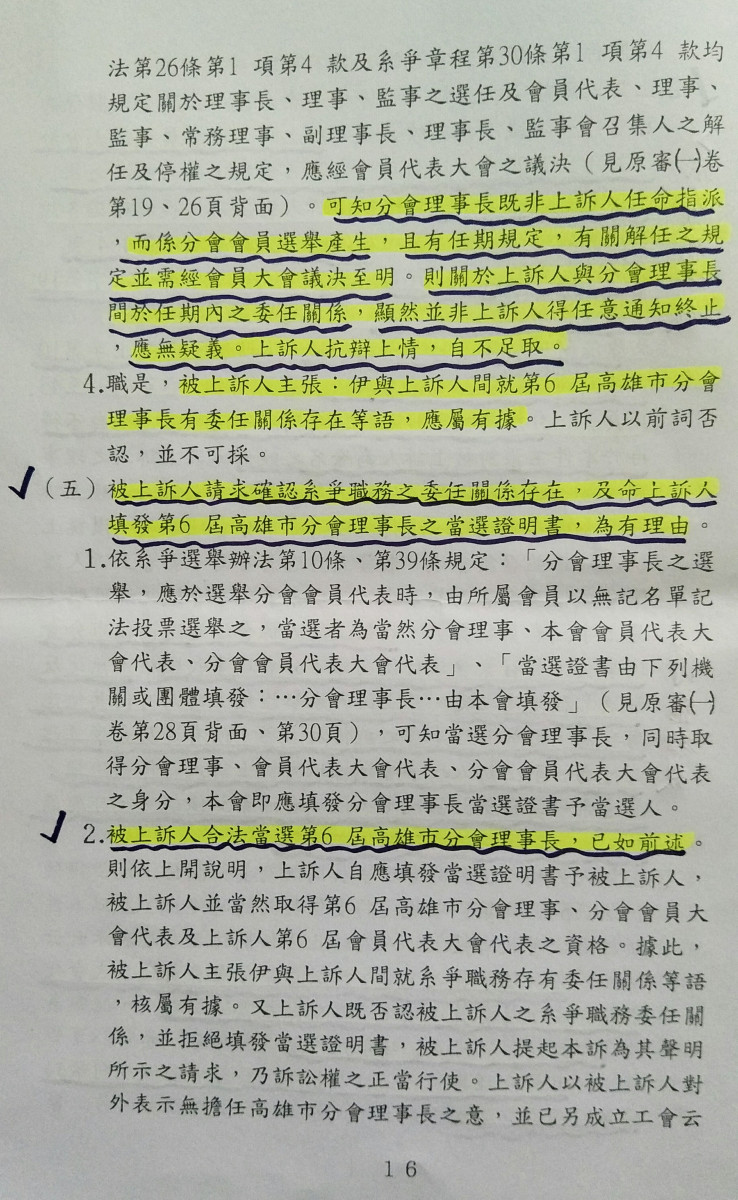 法第26條第1 項第4 款及系爭章程第30條第1 項第4 款均
規定關於理事長、理事、監事之選任及會員代表、理事、
監事、常務理事、副理事長、理事長、監事會召集人之解
任及停權之規定，應經會員代表大會之議決（見原審㈠卷
第19、26頁背面）。可知分會理事長既非上訴人任命指派
，而係分會會員選舉產生，且有任期規定，有關解任之規
定並需經會員大會議決至明。則關於上訴人與分會理事長
間於任期內之委任關係，顯然並非上訴人得任意通知終止
，應無疑義。上訴人抗辯上情，自不足取。
4.職是，被上訴人主張：伊與上訴人間就第6 屆高雄市分會
理事長有委任關係存在等語，應屬有據。上訴人以前詞否
認，並不可採。
（五）被上訴人請求確認系爭職務之委任關係存在，及命上訴人
填發第6 屆高雄市分會理事長之當選證明書，為有理由。
1.依系爭選舉辦法第10條、第39條規定：「分會理事長之選
舉，應於選舉分會會員代表時，由所屬會員以無記名單記
法投票選舉之，當選者為當然分會理事、本會會員代表大
會代表、分會會員代表大會代表」、「當選證書由下列機
關或團體填發：…分會理事長…由本會填發」（見原審㈠
卷第28頁背面、第30頁），可知當選分會理事長，同時取
得分會理事、會員代表大會代表、分會會員代表大會代表
之身分，本會即應填發分會理事長當選證書予當選人。
2.被上訴人合法當選第6 屆高雄市分會理事長，已如前述。
則依上開說明，上訴人自應填發當選證明書予被上訴人，
被上訴人並當然取得第6 屆高雄市分會理事、分會會員大
會代表及上訴人第6 屆會員代表大會代表之資格。據此，
被上訴人主張伊與上訴人間就系爭職務存有委任關係等語
，核屬有據。又上訴人既否認被上訴人之系爭職務委任關
係，並拒絕填發當選證明書，被上訴人提起本訴為其聲明
所示之請求，乃訴訟權之正當行使。上訴人以被上訴人對
外表示無擔任高雄市分會理事長之意，並已另成立工會云
16